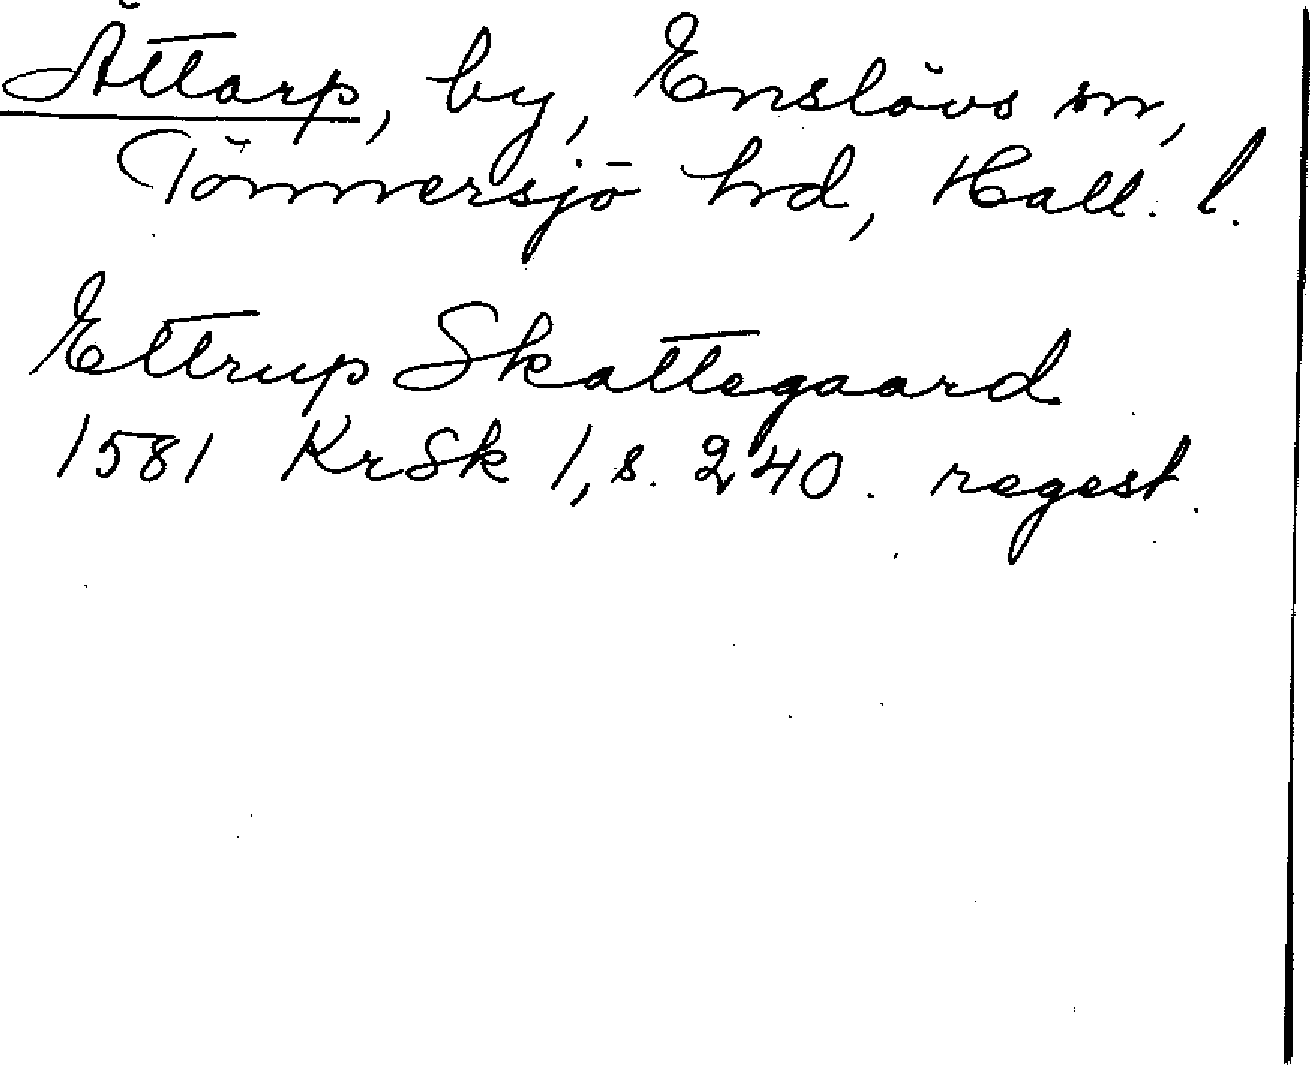 Ättarp, by, Enslövs sn,
Tönnersjö hd, Hall. l.
Ettrup Skattegaard
1581 KrSk 1, s. 240. regest.